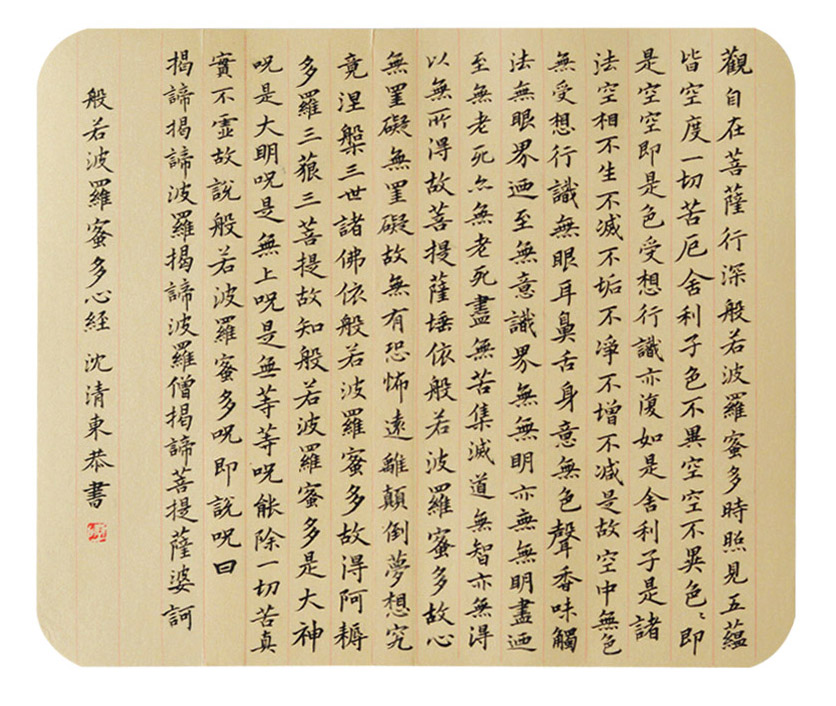 觀自在菩薩行深般若波羅蜜多時照見五蘊
皆空度一切苦厄舍利子色不異空空不異色〻即
是空空即是色受想行識亦復如是舍利子是諸
法空相不生不滅不垢不淨不增不減是故空中無色
無受想行識無眼耳鼻舌身意無色聲香味觸
法無眼界廼至無意識界無無明亦無無明盡廼
至無老死亦無老死盡無苦集滅道無智亦無得
以無所得故菩提薩埵依般若波羅蜜多故心
無罣礙無罣礙故無有恐怖遠離顛倒夢想究
竟涅槃三世諸佛依般若波羅蜜多故得阿耨
多羅三藐三菩提故知般若波羅蜜多是大神
呪是大明呪是無上呪是無等等呪能除一切苦真
實不虛故說般若波羅蜜多呪即說呪曰
揭諦揭諦波羅揭諦波羅僧揭諦菩提薩婆訶
般若波羅蜜多心経 沈清東恭書